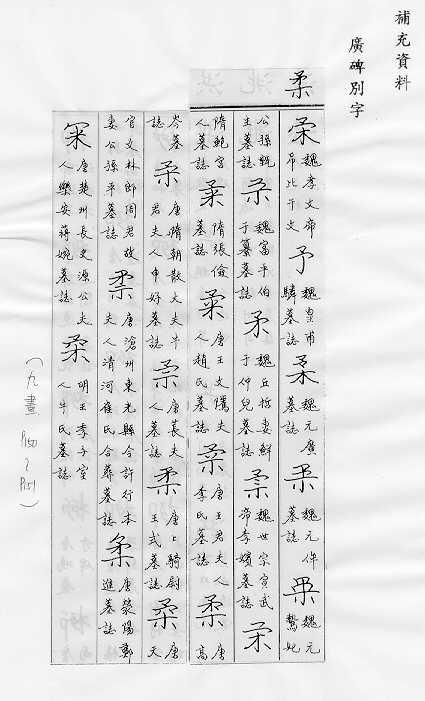 補充資料
廣碑別字
柔
柔魏孝文帝弔比干文 予魏皇甫驎墓誌 柔魏元廣墓誌 柔魏元侔墓誌 柔魏元鷙妃
公孫甑生墓誌 柔魏富平伯于纂墓誌 柔魏丘哲妻鮮于仲兒墓誌 柔魏世宗宣武帝李嬪墓誌 柔
隋鮑宮人墓誌 柔隋張儉墓誌 柔唐王文隲夫人趙氏墓誌 柔唐王君夫人李氏墓誌 柔唐高
岑墓誌 柔唐隋朝散大夫牛君夫人申好墓誌 柔唐萇夫人墓誌 柔唐上騎尉王式墓誌 柔唐天
官文林郎周君故妻公孫平墓誌 柔唐滄州東光縣令許行本夫人清河崔氏合葬墓誌 柔唐滎陽鄭進墓誌
柔唐楚州長史源公夫人樂安蔣婉墓誌 柔明王季子室人牛氏墓誌
(九畫 P150~P151)